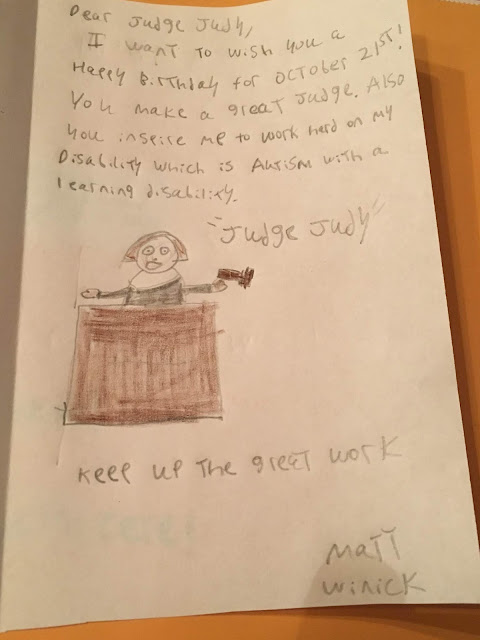 Dear Judge Judy,
I want to wish you a
Happy Birthday for October 21st!
You make a great Judge. Also
you inspire me to work hard on my
Disability which is Autism with a
learning disability.
"Judge Judy"
Keep up the great work
Matt
Winick